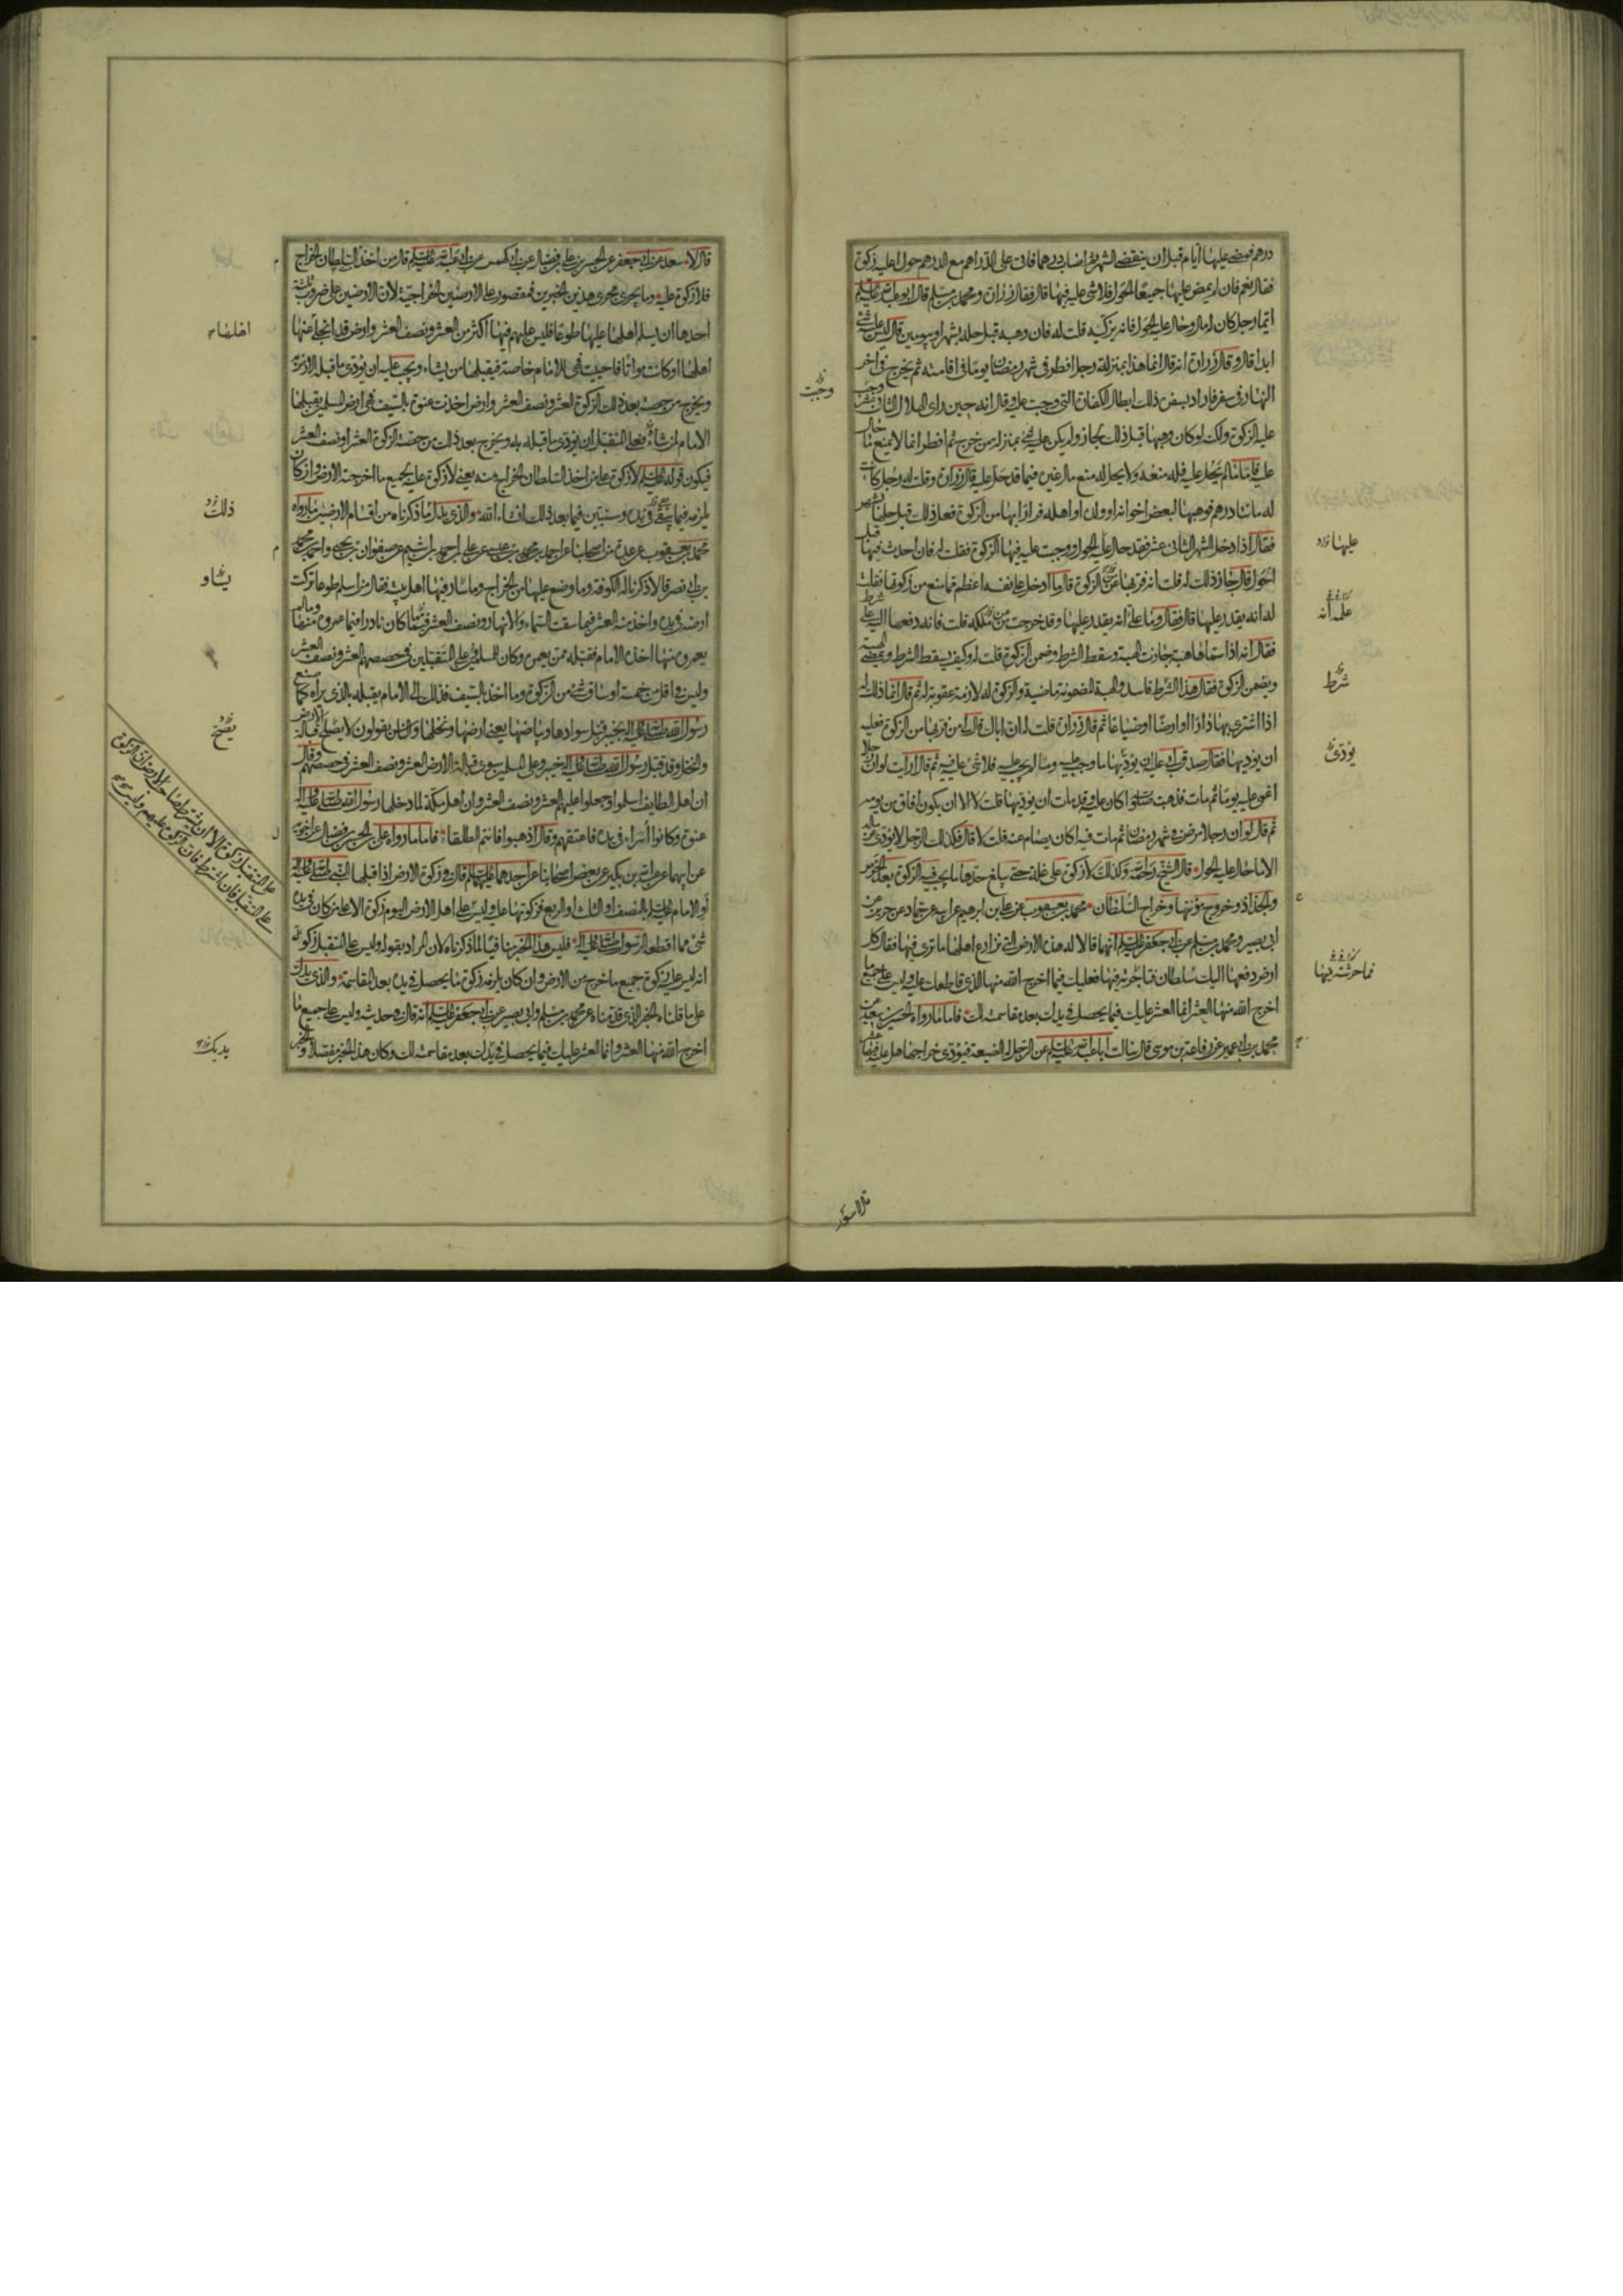 درهم فمضى عليها أيام قبل ان ينقضى الشهر ثم اصاب درهما فاتى على الدراهم مع الدرهم حول اعليه زكوة
فقال نعم فان لم يمض عليها جميعا الحول فلا شئ عليه فيها قال فقال زرارة ومحمد بن مسلم قال ابو عبد الله عليه السلم
ايما رجل كان له مال وحال عليه الحول فانه يزكيه قلت له فان وهبه قبل حله بشهر او بيومين قال ليس عليه شئ
ابدا قال وقال زرارة انه قال انما هذا بمنزلة رجل افطر في شهر رمضان يوما في اقامته ثم يخرج في اخر
النهار في سفر فاراد بسفره ذلك ابطال الكفارة التي وجبت عليه وقال انه حين راى الهلال الثاني عشر وجبت
عليه الزكوة ولكنه لو كان وهبها قبل ذلك لجاز ولم يكن عليه شئ بمنزلة من خرج ثم افطر انما لا يمنع ما حال
عليه فاما ما لم يحل عليه فله منعه ولا يحل له منع مال غيره فيما قد حل عليه قال زرارة وقلت له رجل كانت
له مائتا درهم فوهبها لبعض اخوانه او ولده او اهله فرارا بها من الزكوة فعل ذلك قبل حلها بشهر
فقال اذا دخل الشهر الثاني عشر فقد حال عليه الحول ووجبت عليه فيها الزكوة فقلت له فان احدث فيها قبل
الحول قال جاز ذلك له قلت انه فر بها من الزكوة قال ما ادخل على نفسه اعظم مما منع من زكوتها فقلت
له انه يقدر عليها قال فقال وما علمه انه يقدر عليها وقد خرجت من ملكه قلت فانه دفعها اليه على شرط
فقال انه اذا سماها هبة جازت الهبة وسقط الشرط وضمن الزكوة قلت له وكيف يسقط الشرط وتمضى الهبة
ويضمن الزكوة فقال هذا الشرط فاسد والهبة المضمونة ماضية والزكوة له لازمة عقوبة له ثم قال انما ذلك له
اذا اشترى بها دارا او ارضا او ضياعا ثم قال زرارة قلت له ان اباك قال لى من فر بها من الزكوة فعليه
ان يؤديها فقال صدق ابى عليه ان يؤديها ما وجب عليه وما لم يجب عليه فلا شئ عليه فيه ثم قال ارأيت لو ان رجلا
اغمى عليه يوما ثم مات فذهبت صلوته اكان عليه وقد مات ان يؤديها قلت لا الا ان يكون افاق من يومه
ثم قال لو ان رجلا مرض في شهر رمضان ثم مات فيه اكان يصام عنه قلت لا قال فكذلك الرجل لا يؤدى عن ماله
الا ما حال عليه الحول قال الشيخ رحمه الله وكذلك لا زكوة على غلة حتى يبلغ حدها ما يجب فيه الزكوة بعد الخرص
والجذاذ وخروج مؤنتها وخراج السلطان محمد بن يعقوب عن على بن ابرهيم عن ابيه عن حماد عن حريز عن
ابى بصير ومحمد بن مسلم عن ابى جعفر عليه السلم انهما قالا له هذه الارض التي نزارع اهلها ما ترى فيها فقال كل
ارض دفعها اليك سلطان فتاجرته فيها فعليك فيما اخرج الله منها الذى قاطعك عليه وليس على جميع ما
اخرج الله منها العشر انما العشر عليك فيما يحصل في يدك بعد مقاسمته لك فاما ما رواه الحسين بن سعيد عن
محمد بن ابى عمير عن رفاعة بن موسى قال سالت ابا عبد الله عليه السلم عن الرجل له الضيعة فيؤدى خراجها هل عليه فيها عشر
وجبت
عليها
علمه انه
شرط
يؤدى
فما حرثته فيها
قال لا سعد عن ابى جعفر عن الحسن بن على بن فضال عن ابى كهمس عن ابى عبد الله عليه السلم قال من اخذ منه السلطان الخراج
فلا زكوة عليه وما يجرى مجرى هذين الخبرين فمقصور على الارضين الخراجية لان الارضين على ضروب ثلثة
احدها ان يسلم اهلها عليها طوعا فليس عليهم فيها اكثر من العشر ونصف العشر وارض قد انجلا عنها
اهلها او كانت مواتا فاحييت فهى للامام خاصة فيقبلها من يشاء ويجب عليه ان يؤدى ما قبل الارض به
ويخرج من حصته بعد ذلك الزكوة العشر ونصف العشر وارض اخذت عنوة بالسيف فهى ارض المسلمين يقبلها
الامام لمن شاء فعلى المتقبل ان يؤدى ما قبله به ويخرج بعد ذلك من حصته الزكوة العشر او نصف العشر
فيكون قوله عليه السلم لا زكوة على من اخذ السلطان الخراج منه يعنى لا زكوة عليه لجميع ما اخرجت الارض وان كان
يلزمه فيما يبقى في يده وسنبين فيما بعد ذلك انشاء الله والذى يدل على ما ذكرناه من اقسام الارضين ما رواه
محمد بن يعقوب عن عدة من اصحابنا عن احمد بن محمد بن عيسى عن على بن احمد بن اشيم عن صفوان بن يحيى واحمد بن محمد
بن ابى نصر قالا ذكرنا له الكوفة وما وضع عليها من الخراج وما سار فيها اهل بيته فقال من اسلم طوعا تركت
ارضه في يده واخذ منه العشر فيما سقت السماء والانهار ونصف العشر فيما كان نادرا فيما عمروه منها وما لم
يعمروه منها اخذه الامام فقبله ممن يعمره وكان للمسلمين وعلى المتقبلين في حصصهم العشر ونصف العشر
وليس في اقل من خمسة اوساق شئ من الزكوة وما اخذ بالسيف فذلك الى الامام يقبله بالذى يراه كما صنع
رسول الله صلى الله عليه واله بخيبر قبل سوادها وبياضها يعنى ارضها ونخلها والناس يقولون لا يصلح قبالة الارض
والنخل وقد قبل رسول الله صلى الله عليه واله خيبر وعلى المسلمين سوى قبالة الارض العشر ونصف العشر في حصصهم وقال
ان اهل الطايف اسلموا وجعلوا عليهم العشر ونصف العشر وان اهل مكة لما دخلها رسول الله صلى الله عليه واله
عنوة وكانوا أسراء في يده فاعتقهم وقال اذهبوا فانتم الطلقاء فاما ما رواه على بن الحسن بن فضال عن اخويه
عن ابيهما عن عبد الله بن بكير عن بعض اصحابنا عن احدهما عليهما السلم قال في زكوة الارض اذا قبلها النبى صلى الله عليه واله
أو الامام عليه السلم بالنصف او الثلث او الربع فزكوتها عليه وليس على اهل الارض اليوم زكوة الا على من كان في يده
شئ مما اقطعه الرسول صلى الله عليه واله فليس هذا الخبر منافيا لما ذكرناه لان المراد بقوله وليس على المتقبل زكوة
انه ليس عليه زكوة جميع ما خرج من الارض وان كان يلزمه زكوة ما يحصل في يده بعد المقاسمة والذى يدل
على ما قلناه الخبر الذى قدمناه عن محمد بن مسلم وابى بصير عن ابى جعفر عليه السلم انه قال في حديثه وليس على جميع ما
اخرج الله منها العشر وانما العشر عليك فيما يحصل في يدك بعد مقاسمته لك وكان هذا الخبر مفصلا والخبر
اهلها
ذلك
يشاء
يصلح
يديك
على المتقبل زكوة الا ان يشترط صاحب الارض ان الزكوة
على المتقبل فان اشترط فان الزكوة عليهم وليس